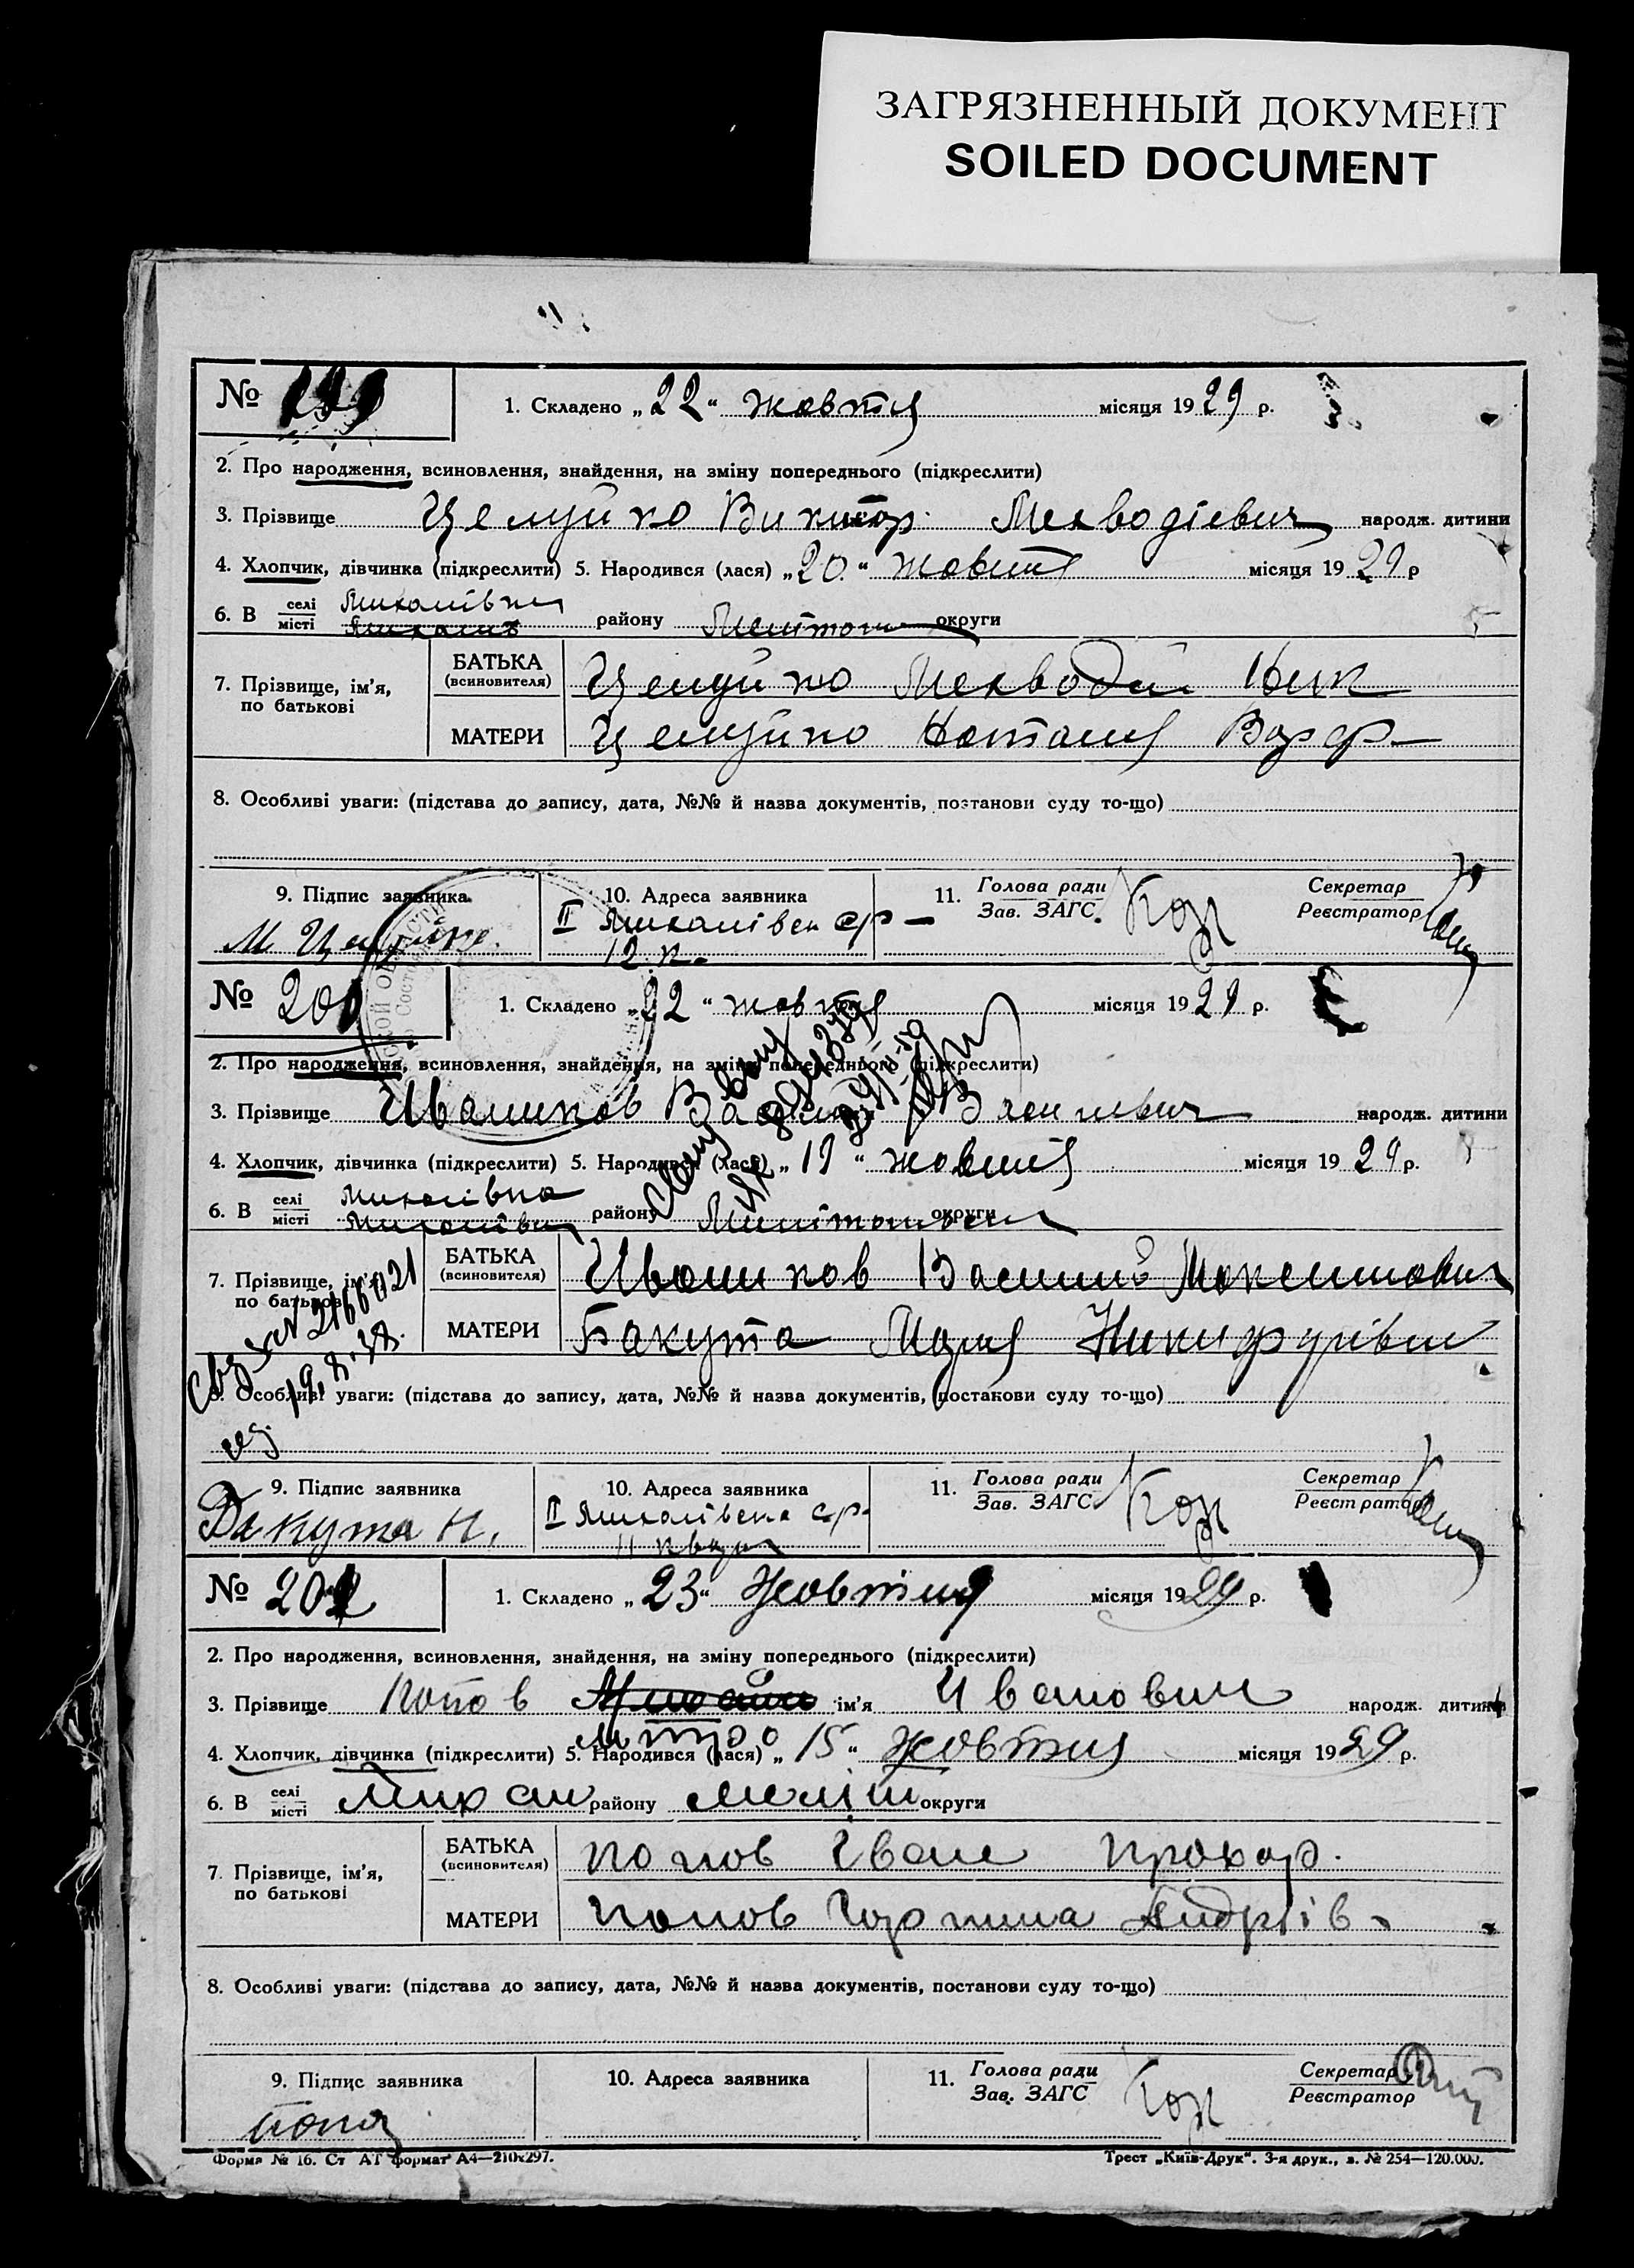 ЗАГРЯЗНЕННЫЙ ДОКУМЕНТ
SOILED DOCUMENT
№ 199
1. Складено „22“ жовтня місяця 1929 р.
2. Про народження, всиновлення, знайдення, на зміну попереднього (підкреслити)
3. Прізвище Целуйко Виктор Мехводієвич народж. дитини
4. Хлопчик, дівчинка (підкреслити) 5. Народився (лася) „20“ жовтня місяця 1929 р
6. В селі місті Михайлівки району округи
7. Прізвище, ім'я, по батькові
БАТЬКА (всиновителя) Целуйко Мехводий Ник
МАТЕРИ Целуйко Наталия Варф
8. Особливі уваги: (підстава до запису, дата, №№ й назва документів, постанови суду то-що)
9. Підпис заявника
10. Адреса заявника
II Михайлівск с/р
12 к.
11. Голова ради Зав. ЗАГС. Кор
Секретар Реєстратор
№ 200
1. Складено „22“ жовтня місяця 1929 р.
2. Про народження, всиновлення, знайдення, на зміну попереднього (підкреслити)
3. Прізвище Иваников Василь Васильевич народж. дитини
4. Хлопчик, дівчинка (підкреслити) 5. Народився (лася) „19“ жовтня місяця 1929 р.
6. В селі місті Михайлівка району округи
7. Прізвище, ім'я, по батькові
БАТЬКА (всиновителя) Иваников Василий Максимович
МАТЕРИ Бакута Мария Никифорівна
8. Особливі уваги: (підстава до запису, дата, №№ й назва документів, постанови суду то-що)
9. Підпис заявника
Бакута Н.
10. Адреса заявника
II Михайлівська с/р.
11 кварт
11. Голова ради Зав. ЗАГС Кор
Секретар Реєстратор
№ 201
1. Складено „23“ Жовтня місяця 1929 р.
2. Про народження, всиновлення, знайдення, на зміну попереднього (підкреслити)
3. Прізвище Попов ім'я Иванович народж. дитини
4. Хлопчик, дівчинка (підкреслити) 5. Народився (лася) „15“ Жовтня місяця 1929 р.
6. В селі місті Михай району Меліт округи
7. Прізвище, ім'я, по батькові
БАТЬКА (всиновителя) Попов Іван Прохор.
МАТЕРИ Попов Горпина Андріїв
8. Особливі уваги: (підстава до запису, дата, №№ й назва документів, постанови суду то-що)
9. Підпис заявника
10. Адреса заявника
11. Голова ради Зав. ЗАГС Кор
Секретар Реєстратор
Форма № 16. Ст АТ формат А4—210x297.
Трест „Київ-Друк“. 3-я друк., з. № 254—120.000.